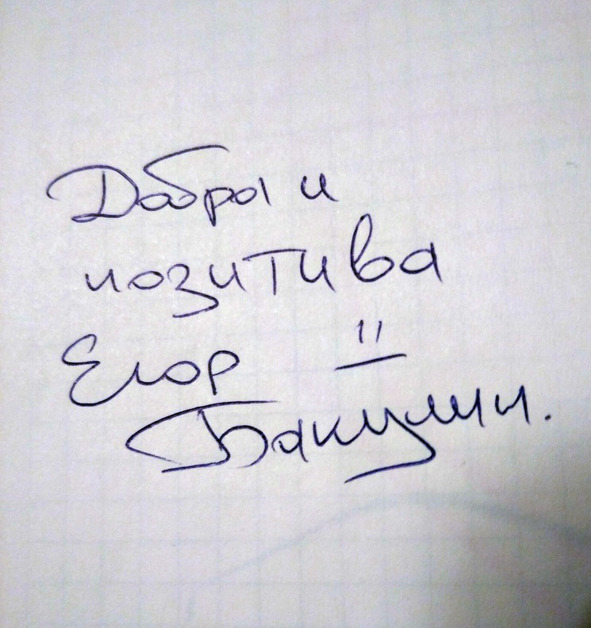 Добра и
позитива
Егор "
Бакулин.